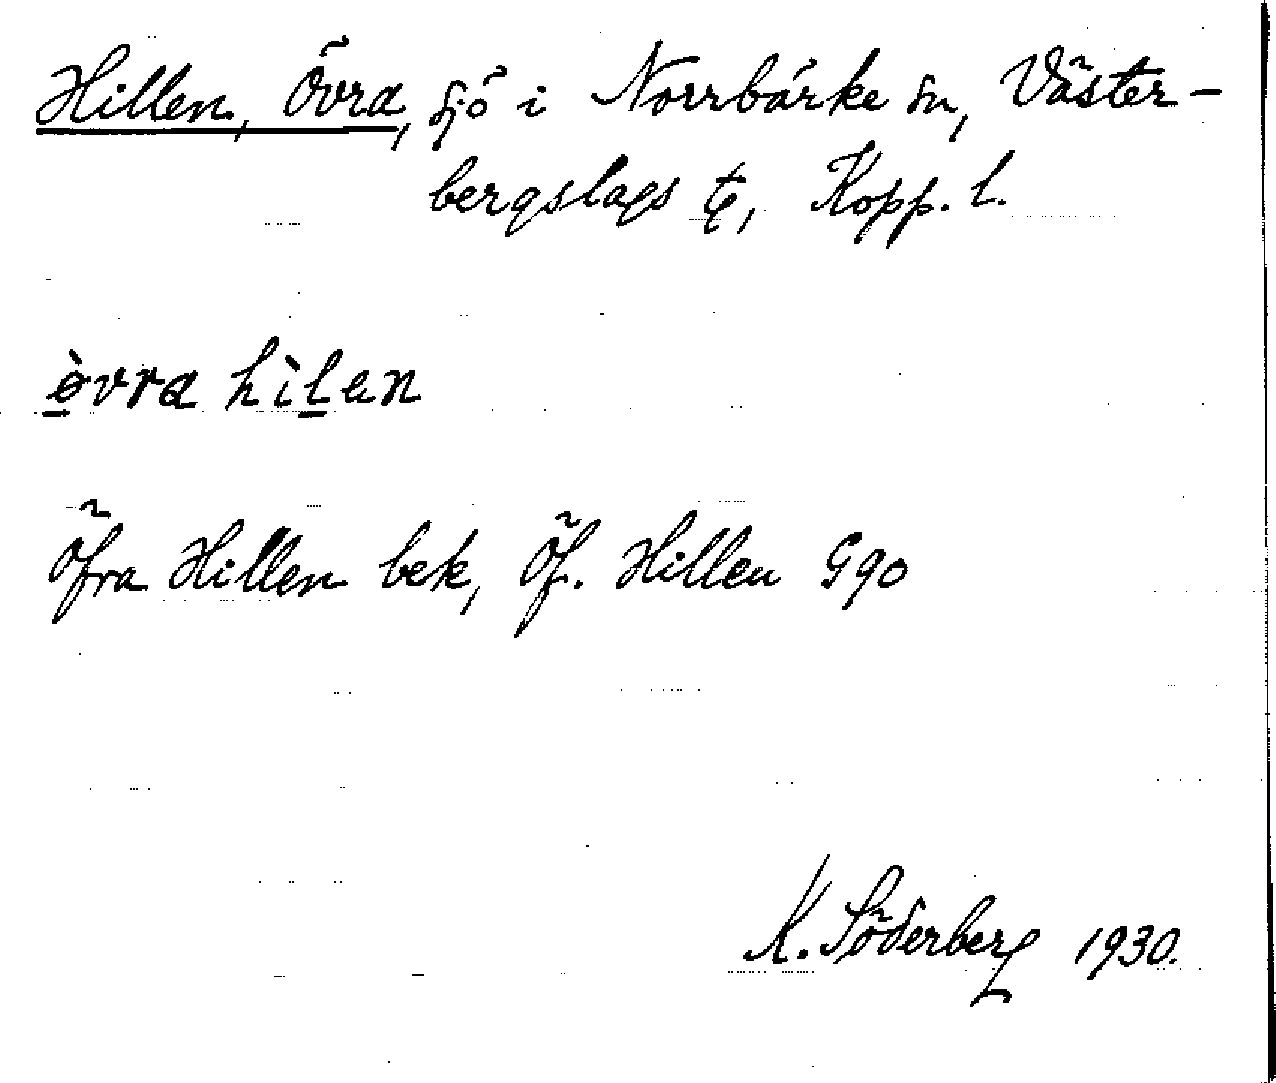 Hillen, Övra, sjö i Norrbärke sn, Väster-
bergslags tg, Kopp. l.
ø̱̀vra hìḻen
Öfra Hillen bek, Öf. Hillen G90
K. Söderberg 1930.